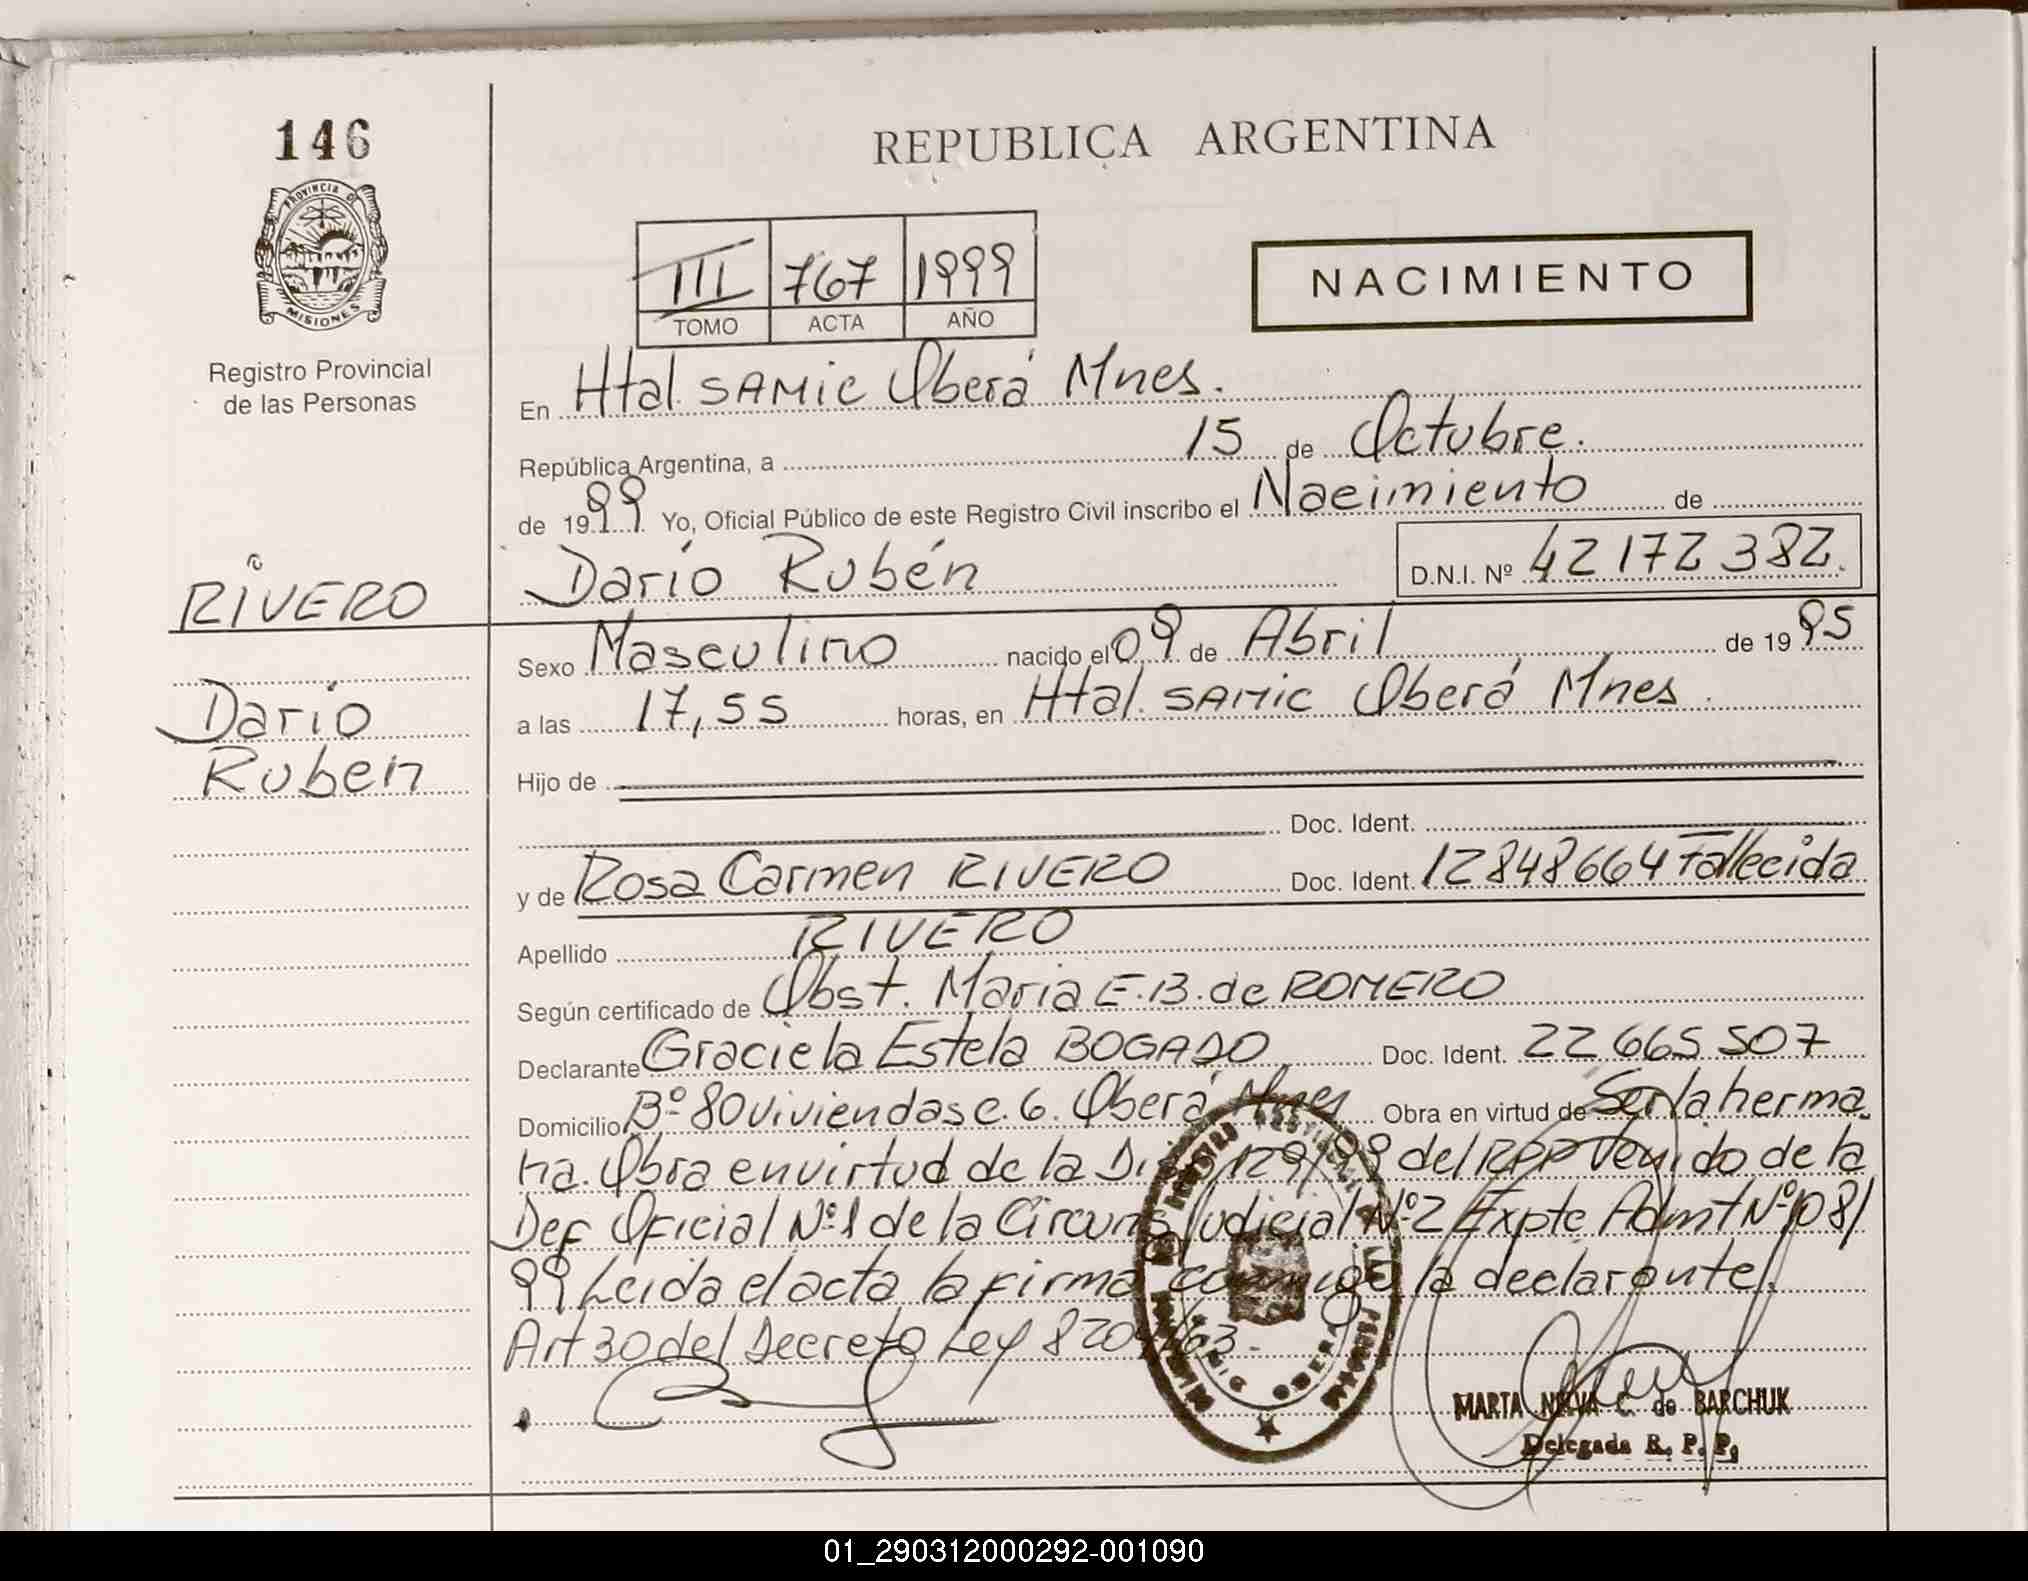 146
PROVINCIA DE
MISIONES
Registro Provincial
de las Personas
RIVERO
Darío
Ruben
REPUBLICA ARGENTINA
III 767 1999
TOMO ACTA AÑO
NACIMIENTO
En Htal. SAMIC Oberá Mnes.
República Argentina, a 15 de Octubre.
de 1999 Yo, Oficial Público de este Registro Civil inscribo el Nacimiento de
Darío Rubén D.N.I. Nº 42172382.
Sexo Masculino nacido el 09 de Abril de 1995
a las 17,55 horas, en Htal. SAMIC Oberá Mnes.
Hijo de
Doc. Ident.
y de Rosa Carmen RIVERO Doc. Ident. 12848664 Fallecida
Apellido RIVERO
Según certificado de Obst. Maria E.B. de ROMERO
Declarante Graciela Estela BOGADO Doc. Ident. 22 665 507
Domicilio Bº 80 viviendas c. 6. Oberá Mnes Obra en virtud de Ser la herma
na. Obra en virtud de la 129/99 del RPP Venido de la
Def Oficial Nº 1 de la Circuns Judicial Nº 2 Expte Admt Nº 1081
99 Leida el acta la firma conmigo la declarante.
Art 30 del Decreto Ley 8204/63.
OBERA
MISIONES
MARTA NILVA C. de BARCHUK
Delegada R. P. P.
01_290312000292-001090